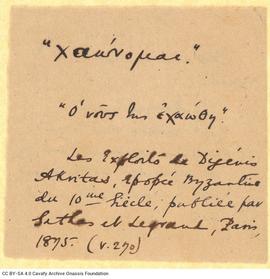 "χαώνομαι."
"Ὁ νοῦς της ἐχαώθη"
Les Exploits de Digénis
Akritas, épopée Byzantine
du 10ème Siècle; publiée par
Sathas et Legrand, Paris,
1875. (v. 290)
CC BY-SA 4.0 Cavafy Archive Onassis Foundation